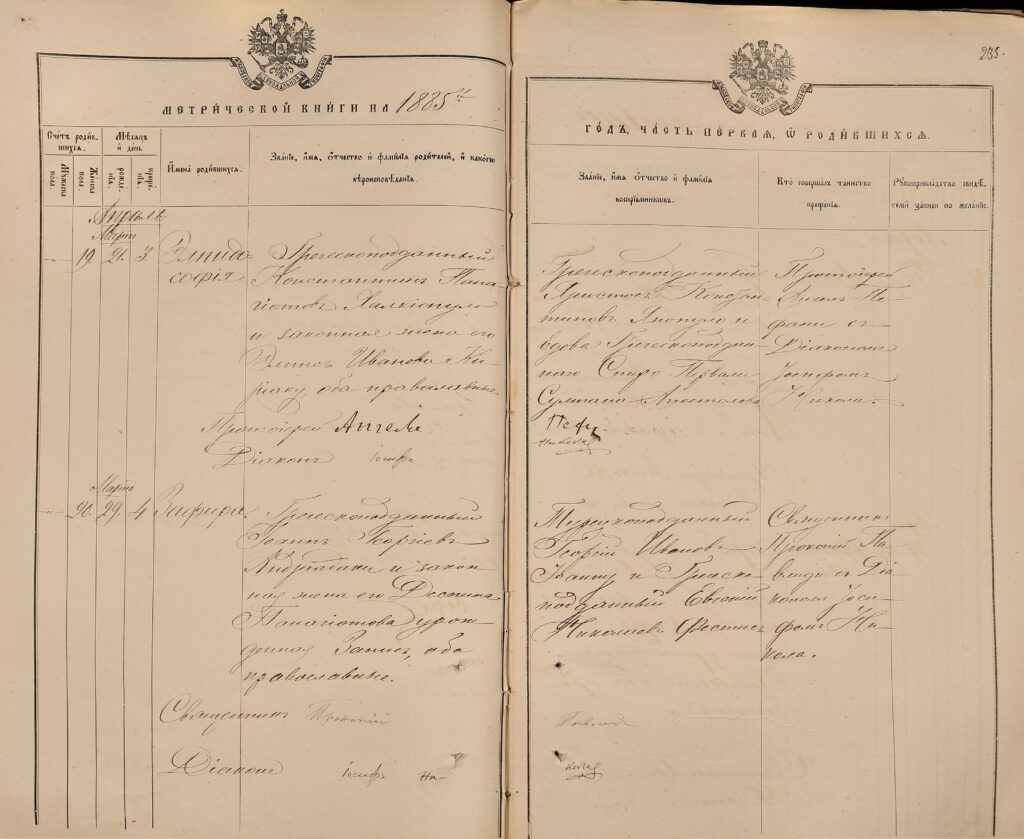 МЕТРИЧЕСКОЙ КНИГИ НА 1885й
Счетъ родив-
шихся.
Мужеска
пола.
Женска
пола.
Мѣсяцъ
и день
рожде-
нія.
креще-
нія.
Имена родившихся.
Званіе, имя, отчество и фамилія родителей, и какого
вѣроисповѣданія.
Апрѣль
Мартъ
19. 21. 3.
софія
Греческоподданный
Константинъ Пана-
гіотовъ Халкіопуло
и законная жена его
Элпись Иванова Ки-
ріаку, оба православные.
Протоіерей
Діаконъ Іосифъ
Мартъ
20. 29. 4
Зафири.
Греческоподданный
Іоаннъ Георгіевъ
и закон-
ная жена его Деспина
Панагіотова урож-
денная оба
православные.
Священникъ Прокопій
Діаконъ Іосифъ Ни-
235.
ГОДЪ, ЧАСТЬ ПЕРВАЯ, Ѡ РОДИВШИХСЯ.
Званіе, имя отчество и фамилія
воспріемниковъ.
Кто совершалъ таинство
крещенія.
Рукоприкладство свидѣ-
телей записи по желанію.
Греческоподданный
Христосъ Констан-
тиновъ и
вдова Греческоподдан-
наго Спиро
Апостолова
Протоіерей
съ
Діакономъ
Іосифомъ
Никола.
Николай
Турецкоподданный
Георгій Ивановъ
и Греческо-
подданный Евгеній
Николаевъ
Священникъ
Прокопій Па-
влиди съ Діа-
кономъ Іоси-
фомъ Ни-
кола.
колай